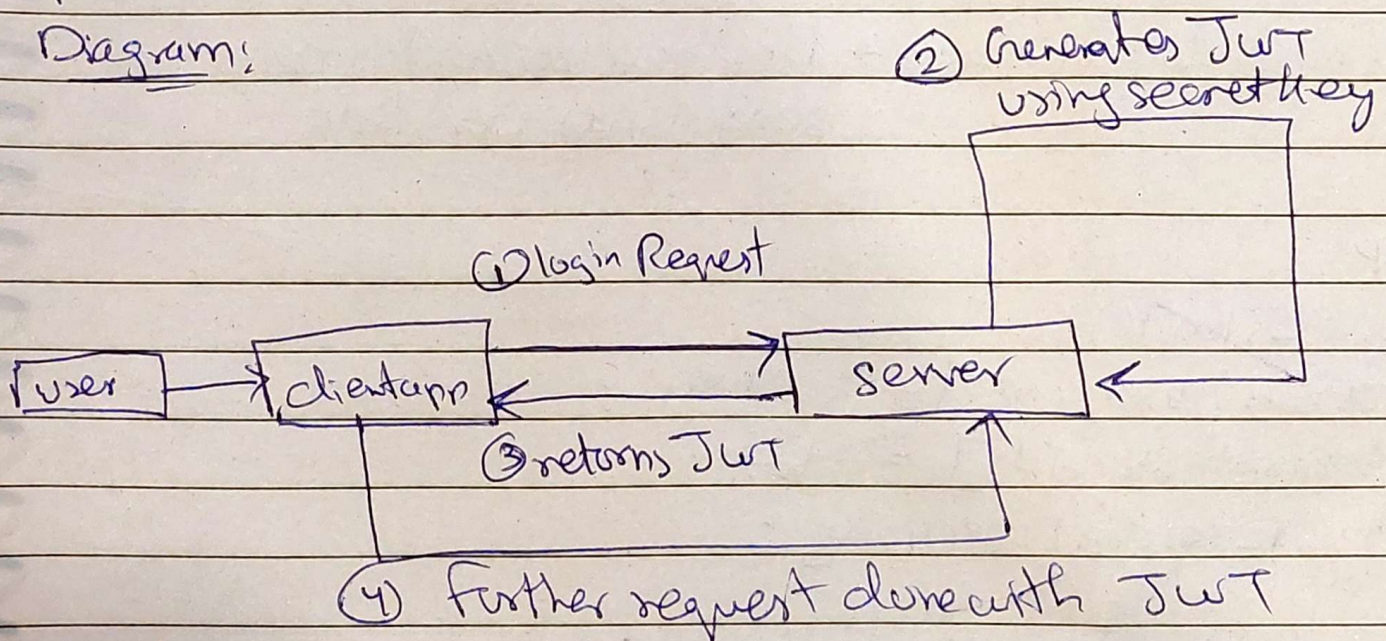 Diagram:
② Generates JWT
using secret key
① login Request
user
clientapp
server
③ returns JWT
④ further request done with JWT